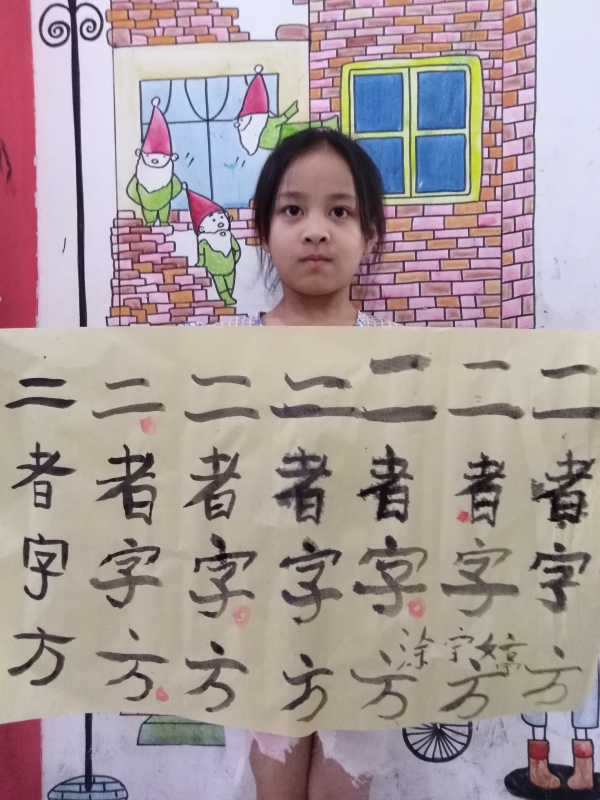 二二二二二二二
者者者者者者者
字字字字字字字
方方方方方方方
涂宇婷